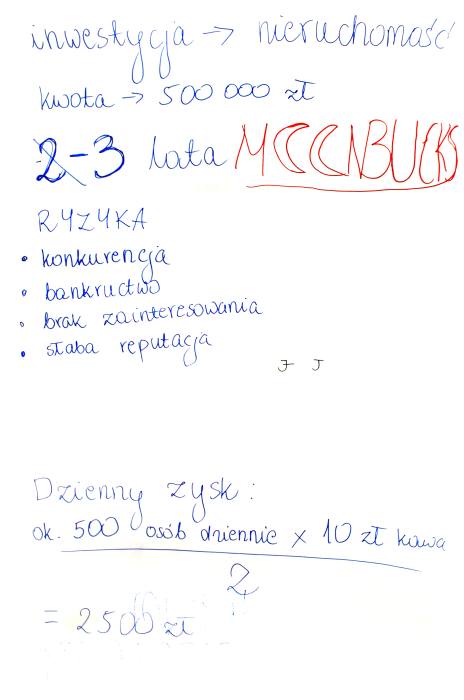 inwestycja → nieruchomość
kwota → 500 000 zł
2-3 lata MOONBUCKS
RYZYKA
• konkurencja
• bankructwo
• brak zainteresowania
• słaba reputacja
J J
Dzienny zysk:
ok. 500 osób dziennie x 10 zł kawa
2
= 2500 zł